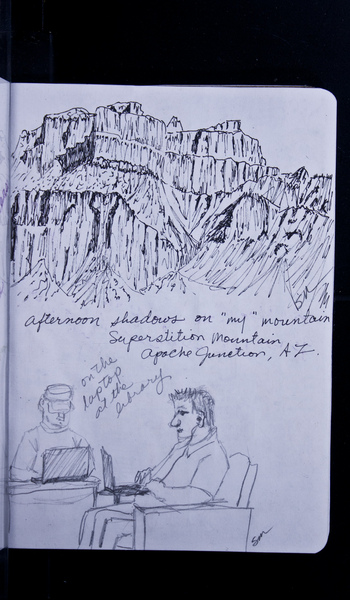 afternoon shadows on "my" mountain
Superstition Mountain
Apache Junction, AZ.
on the
laptop
at the
library
sm